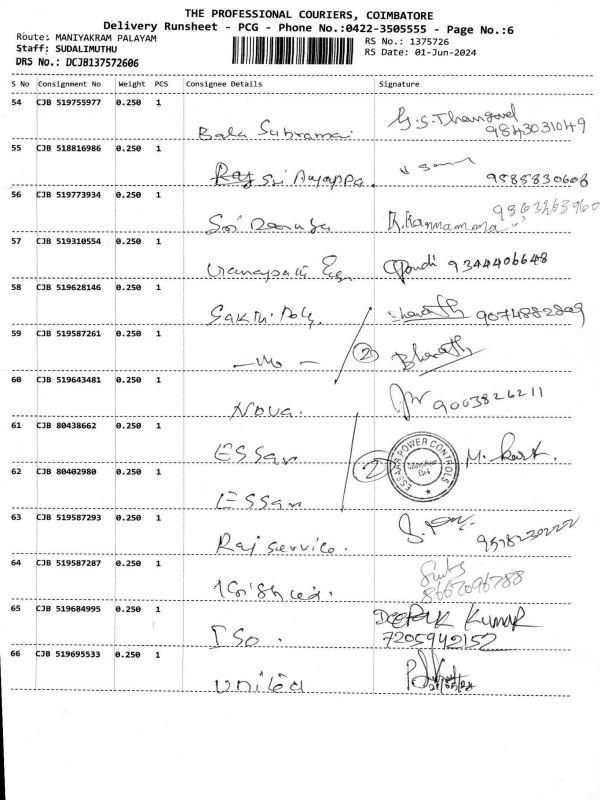 THE PROFESSIONAL COURIERS, COIMBATORE
Delivery Runsheet - PCG - Phone No.:0422-3505555 - Page No.:6
Route: MANIYAKRAM PALAYAM
RS No.: 1375726
Staff: SUDALIMUTHU
RS Date: 01-Jun-2024
DRS No.: DCJB137572606
S No Consignment No Weight PCS Consignee Details Signature
54 CJB 519755977 0.250 1 Bala Subramai G.S.Thangavel
9843031049
55 CJB 518816986 0.250 1 Raj Sri Ayappa. 9585830608
56 CJB 519773934 0.250 1 Sri R.Kannamma
57 CJB 519310554 0.250 1 9344406648
58 CJB 519628146 0.250 1 Sakthi Poly. Bharath 9074882809
59 CJB 519587261 0.250 1 2 Bharath
60 CJB 519643481 0.250 1 Nova. 9003826211
61 CJB 80438662 0.250 1 ESSar 2 ESSAR POWER CONTROLS M.
62 CJB 80402980 0.250 1 ESSar
63 CJB 519587293 0.250 1 Raj service.
64 CJB 519587287 0.250 1
8667096788
65 CJB 519684995 0.250 1 TSO. DEEPAK KUMAR
7205942152
66 CJB 519695533 0.250 1 United